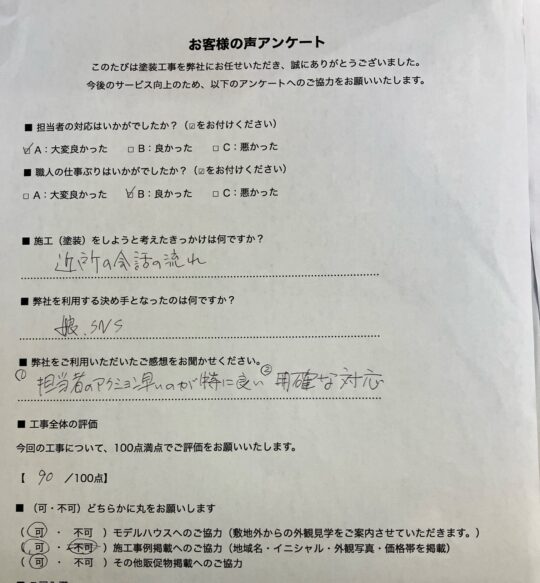 お客様の声アンケート
このたびは塗装工事を弊社にお任せいただき、誠にありがとうございました。
今後のサービス向上のため、以下のアンケートへのご協力をお願いいたします。
■ 担当者の対応はいかがでしたか？（☑をお付けください）
☑ A：大変良かった □ B：良かった □ C：悪かった
■ 職人の仕事ぶりはいかがでしたか？（☑をお付けください）
□ A：大変良かった ☑ B：良かった □ C：悪かった
■ 施工（塗装）をしようと考えたきっかけは何ですか？
近所の会話の流れ
■ 弊社を利用する決め手となったのは何ですか？
娘、SNS
■ 弊社をご利用いただいたご感想をお聞かせください。
① 担当者のアクション早いのが特に良い ② 明確な対応
■ 工事全体の評価
今回の工事について、100点満点でご評価をお願いいたします。
【 90 /100点】
■（可・不可）どちらかに丸をお願いします
（ 可 ・ 不可 ）モデルハウスへのご協力（敷地外からの外観見学をご案内させていただきます。）
（ 可 ・ 不可 ）施工事例掲載へのご協力（地域名・イニシャル・外観写真・価格帯を掲載）
（ 可 ・ 不可 ）その他販促物掲載へのご協力